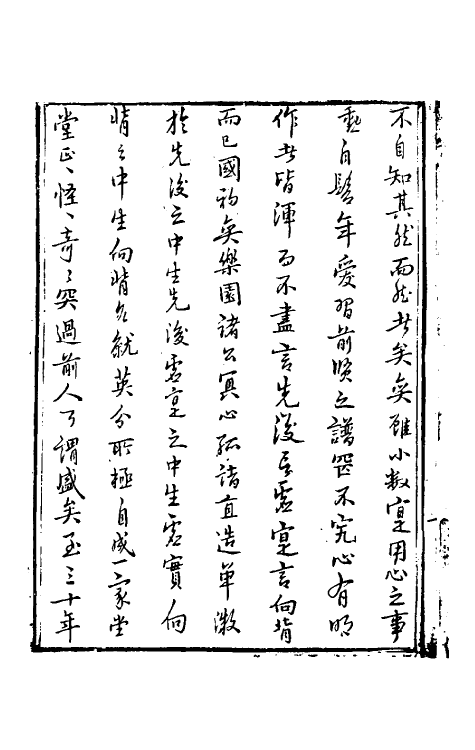 不自知其然而然者矣奕雖小數寔用心之事
自髫年愛習前賢之譜罔不究心有明
作者皆渾而不盡言先後言虛寔言向背
而已國初奕樂園諸公冥心孤詣直造單微
於先後之中生先後虛寔之中生虛實向
背之中生向背各就英分所極自成一家堂
堂正〻怪〻奇〻突過前人可謂盛矣至三十年